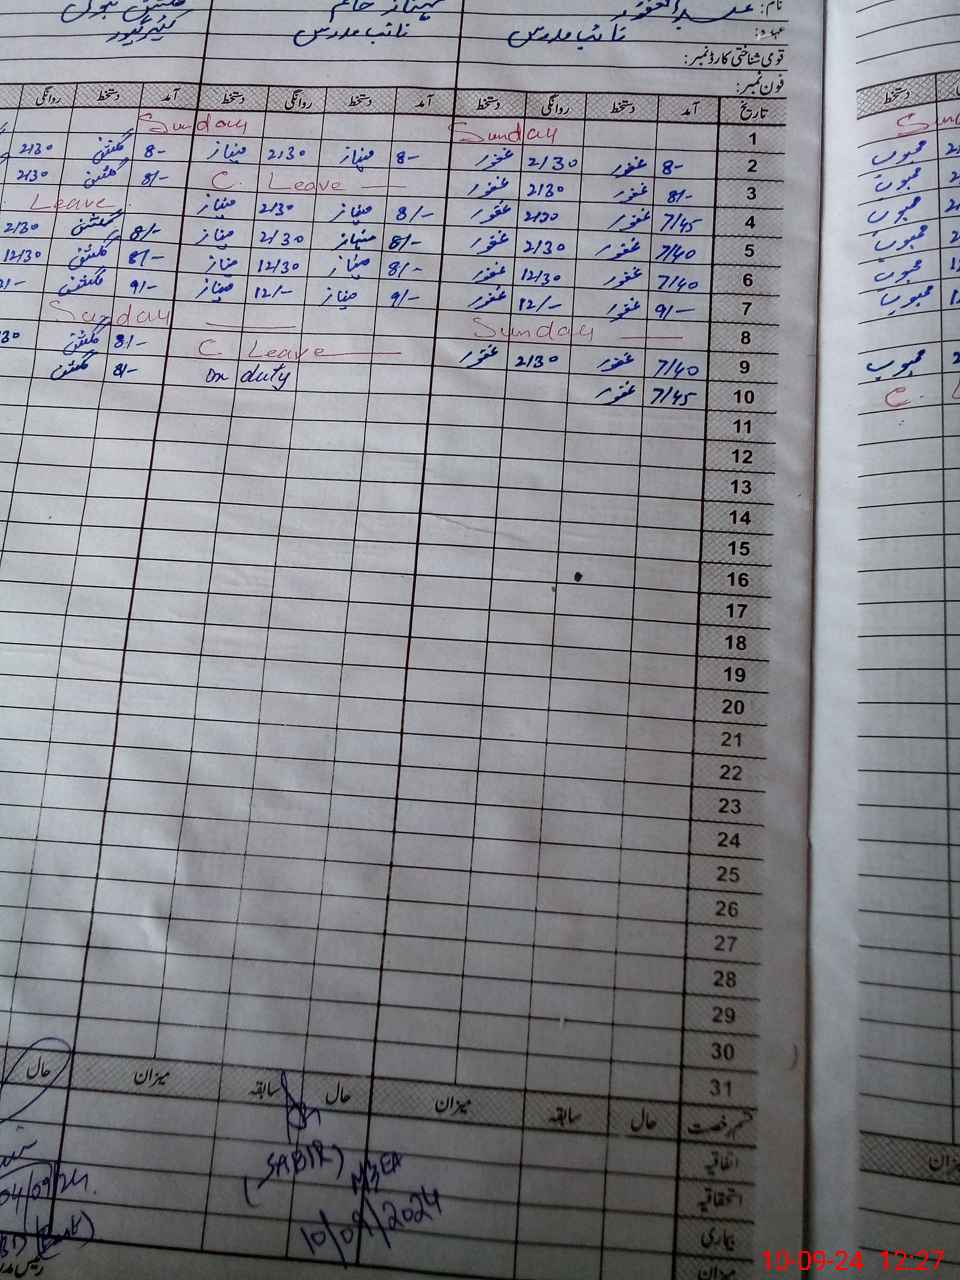 نام: عبدالغفور
عہدہ: نائب مدرس نائب مدرس
قومی شناختی کارڈ نمبر:
فون نمبر:
تاریخ آمد دستخط روانگی دستخط آمد دستخط روانگی دستخط آمد دستخط روانگی دستخط
1 Sunday Sunday
2 8- غفور 2/30 غفور 8- مہناز 2/30 مہناز 8- گلشن 2/30 محبوب
3 8/- غفور 2/30 غفور C. Leave 8/- گلشن 2/30 محبوب
4 7/45 غفور 2/30 غفور 8/- مہناز 2/30 مہناز Leave محبوب
5 7/40 غفور 2/30 غفور 8/- مہناز 2/30 مہناز 8/- گلشن 2/30 محبوب
6 7/40 غفور 12/30 غفور 8/- مہناز 12/30 مہناز 8/- گلشن 12/30 محبوب
7 9/- غفور 12/- غفور 9/- مہناز 12/- مہناز 9/- گلشن محبوب
8 Sunday Sunday
9 7/40 غفور 2/30 غفور C. Leave 8/- گلشن محبوب
10 7/45 غفور on duty 8/- گلشن C.
11
12
13
14
15
16
17
18
19
20
21
22
23
24
25
26
27
28
29
30
31
قسم رخصت حال سابقہ میزان حال سابقہ میزان حال
اتفاقیہ
استحقاقیہ
بیماری
میزان
(SABIR) M&EA
10/09/2024
04/09/24
10-09-24 12:27